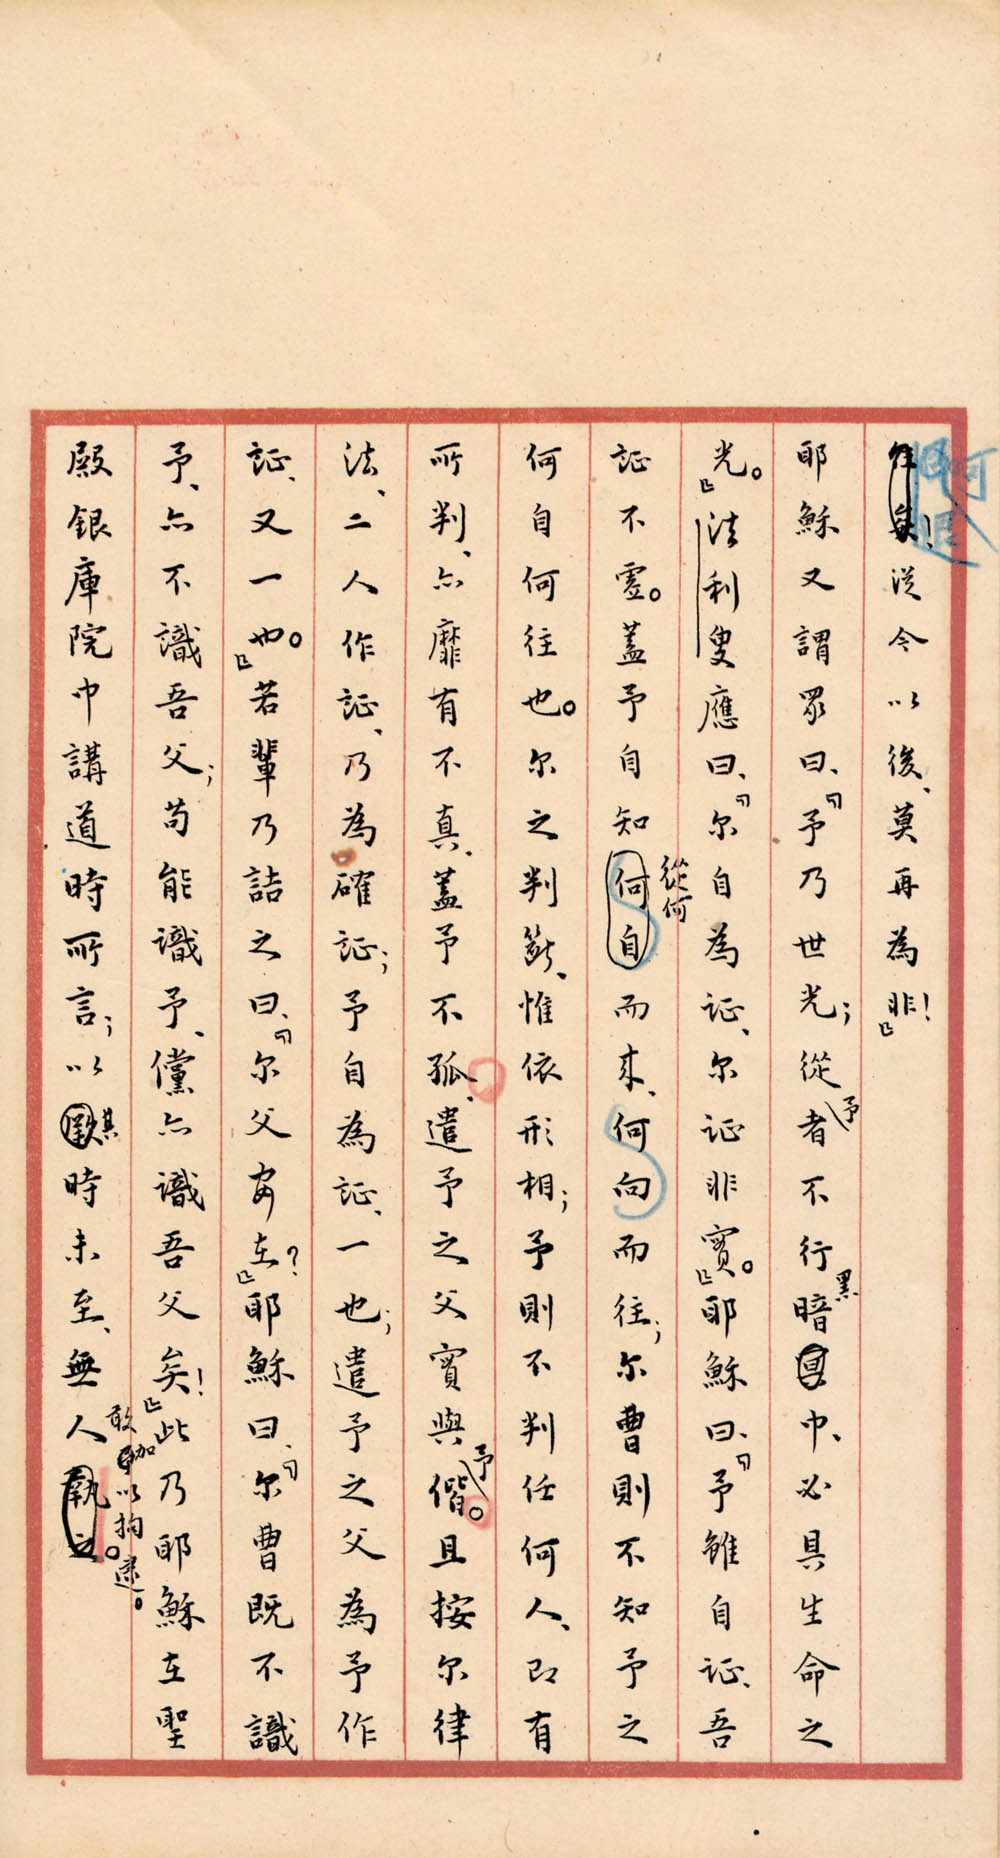 往矣!從今以後、莫再為非!』
耶穌又謂眾曰、『予乃世光;從予者不行暗黑中、必具生命之
光。』法利叟應曰、『尔自為証、尔証非實。』耶穌曰、『予雖自証、吾
証不虛。蓋予自知何自從何而来、何向而往;尔曹則不知予之
何自何往也。尔之判斷、惟依形相;予則不判任何人、即有
所判、亦靡有不真、蓋予不孤、遣予之父實與予偕。且按尔律
法、二人作証、乃為確証;予自為証、一也;遣予之父為予作
証、又一也。』若輩乃詰之曰、『尔父安在?』耶穌曰、『尔曹既不識
予、亦不識吾父;苟能識予、儻亦識吾父矣!』此乃耶穌在聖
殿銀庫院中講道時所言;以其時未至、無人執之。敢加以拘逮。
可